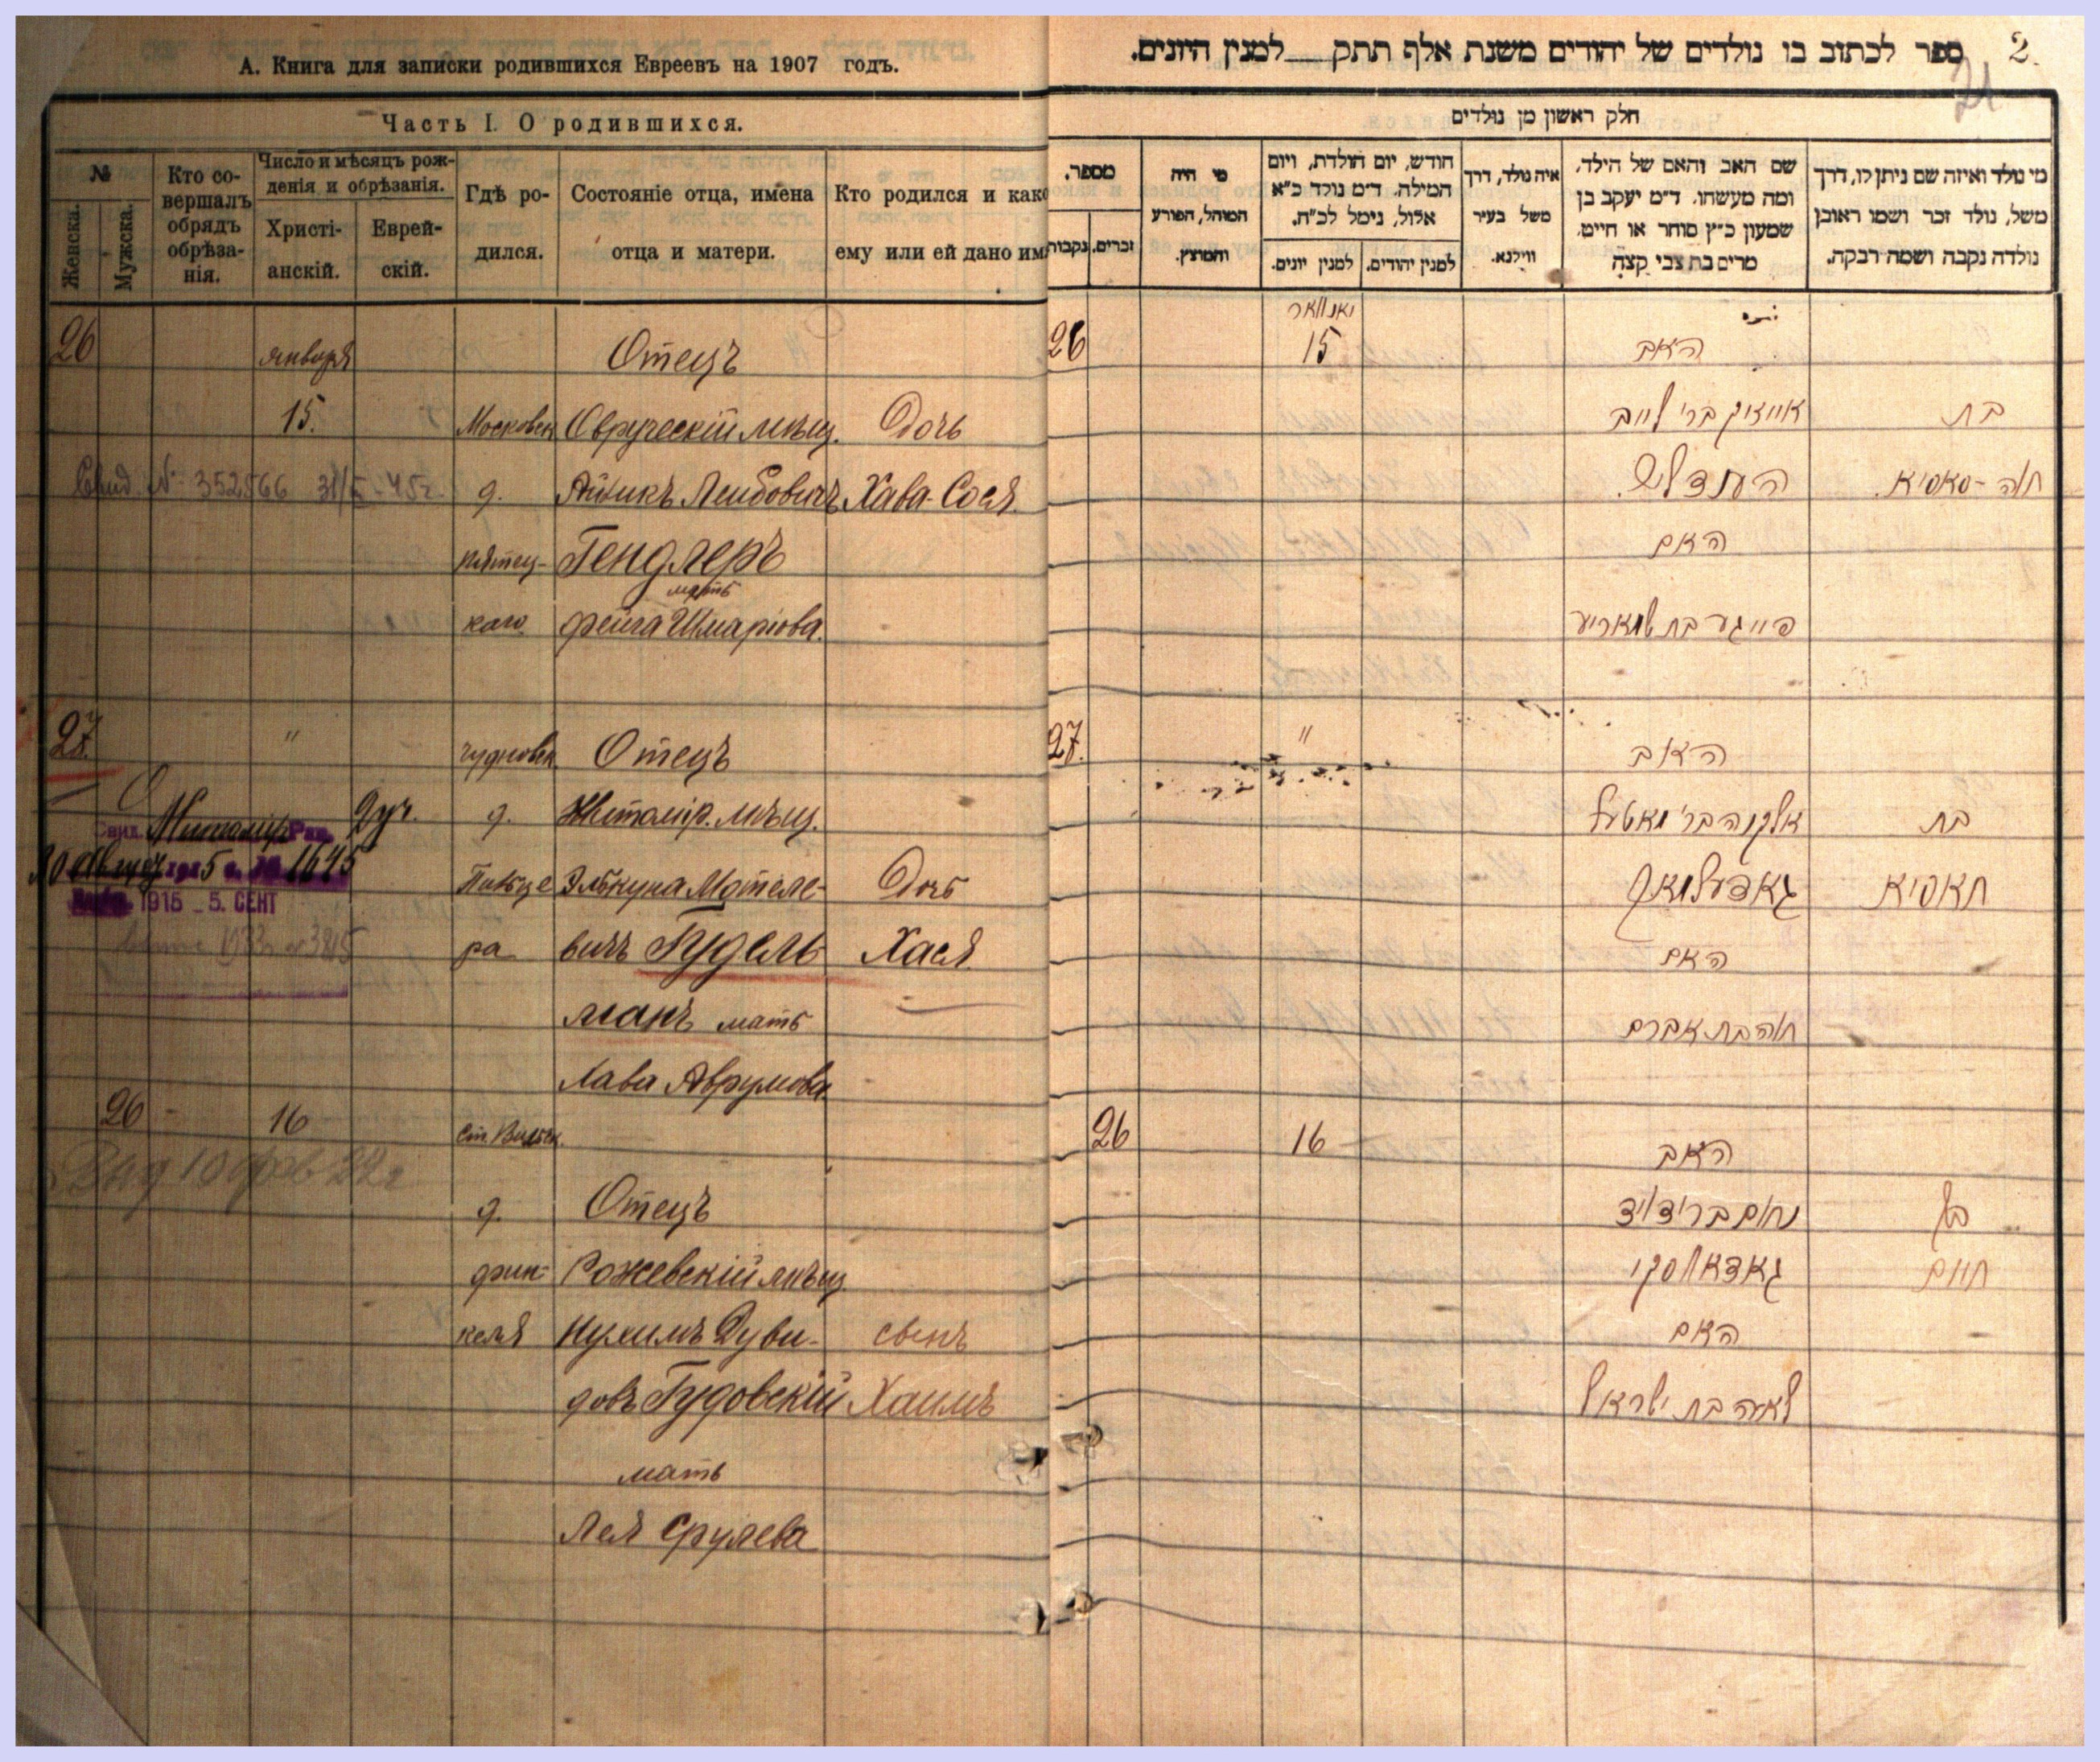 А. Книга для записки родившихся Евреевъ на 1907 годъ.
Часть I. О родившихся.
№
Женска.
Мужска.
Кто со-
вершалъ
обрядъ
обрѣза-
нія.
Число и мѣсяцъ рож-
денія и обрѣзанія.
Христі-
анскій.
Еврей-
скій.
Гдѣ ро-
дился.
Состояніе отца, имена
отца и матери.
Кто родился и како
ему или ей дано им
26 января Отецъ
15. Московск Овруческій мѣщ. Дочь
№ 352566 д. Айзикъ Лейбовичъ Хава-Сося.
пятец- Гендлеръ
мать
каго Фейга Шмаріова.
27. " чудновск. Отецъ
д. Житомір. мѣщ.
Элькуна Мотеле- Дочь
ра вичъ Гудель Хася.
1915 _ 5. СЕНТ
манъ мать
Хава Аврумова
26 16 Ст. Вильск.
10 фев 22г
д. Отецъ
фин- Рожевскій мѣщ.
келя Нухимъ Дуви- сынъ
довъ Гудовскій Хаимъ
мать
Лея Срулева
2.
21
ספר לכתוב בו נולדים של יהודים משנת אלף תתק למנין היונים.
חלק ראשון מן נולדים
מספר.
נקבות
זכרים.
מי היה
המוהל, הפורע
והמוצץ.
חודש, יום הולדת, ויום
המילה. ד״מ נולד כ״א
אלול, נימל לכ״ח.
למנין יונים.
למנין יהודים.
איה נולד, דרך
משל בעיר
ווילנא.
שם האב והאם של הילד,
ומה מעשהו. ד״מ יעקב בן
שמעון כ״ץ סוחר או חייט.
מרים בת צבי קצה
מי נולד ואיזה שם ניתן לו, דרך
משל, נולד זכר ושמו ראובן
נולדה נקבה ושמה רבקה.
יאנוואר
26 15 האב
אייזיק בר׳ לייב בת
הענדליר חוה-סאסיא
האם
פייגע בת שמאריע
27. " האב
אלקנה בר׳ מאטעל בת
גאדעלמאן חאסיא
האם
חוה בת אברם
26 16 האב
נחום בר׳ דוד בן
גאדאווסקי חיים
האם
לאה בת ישראל